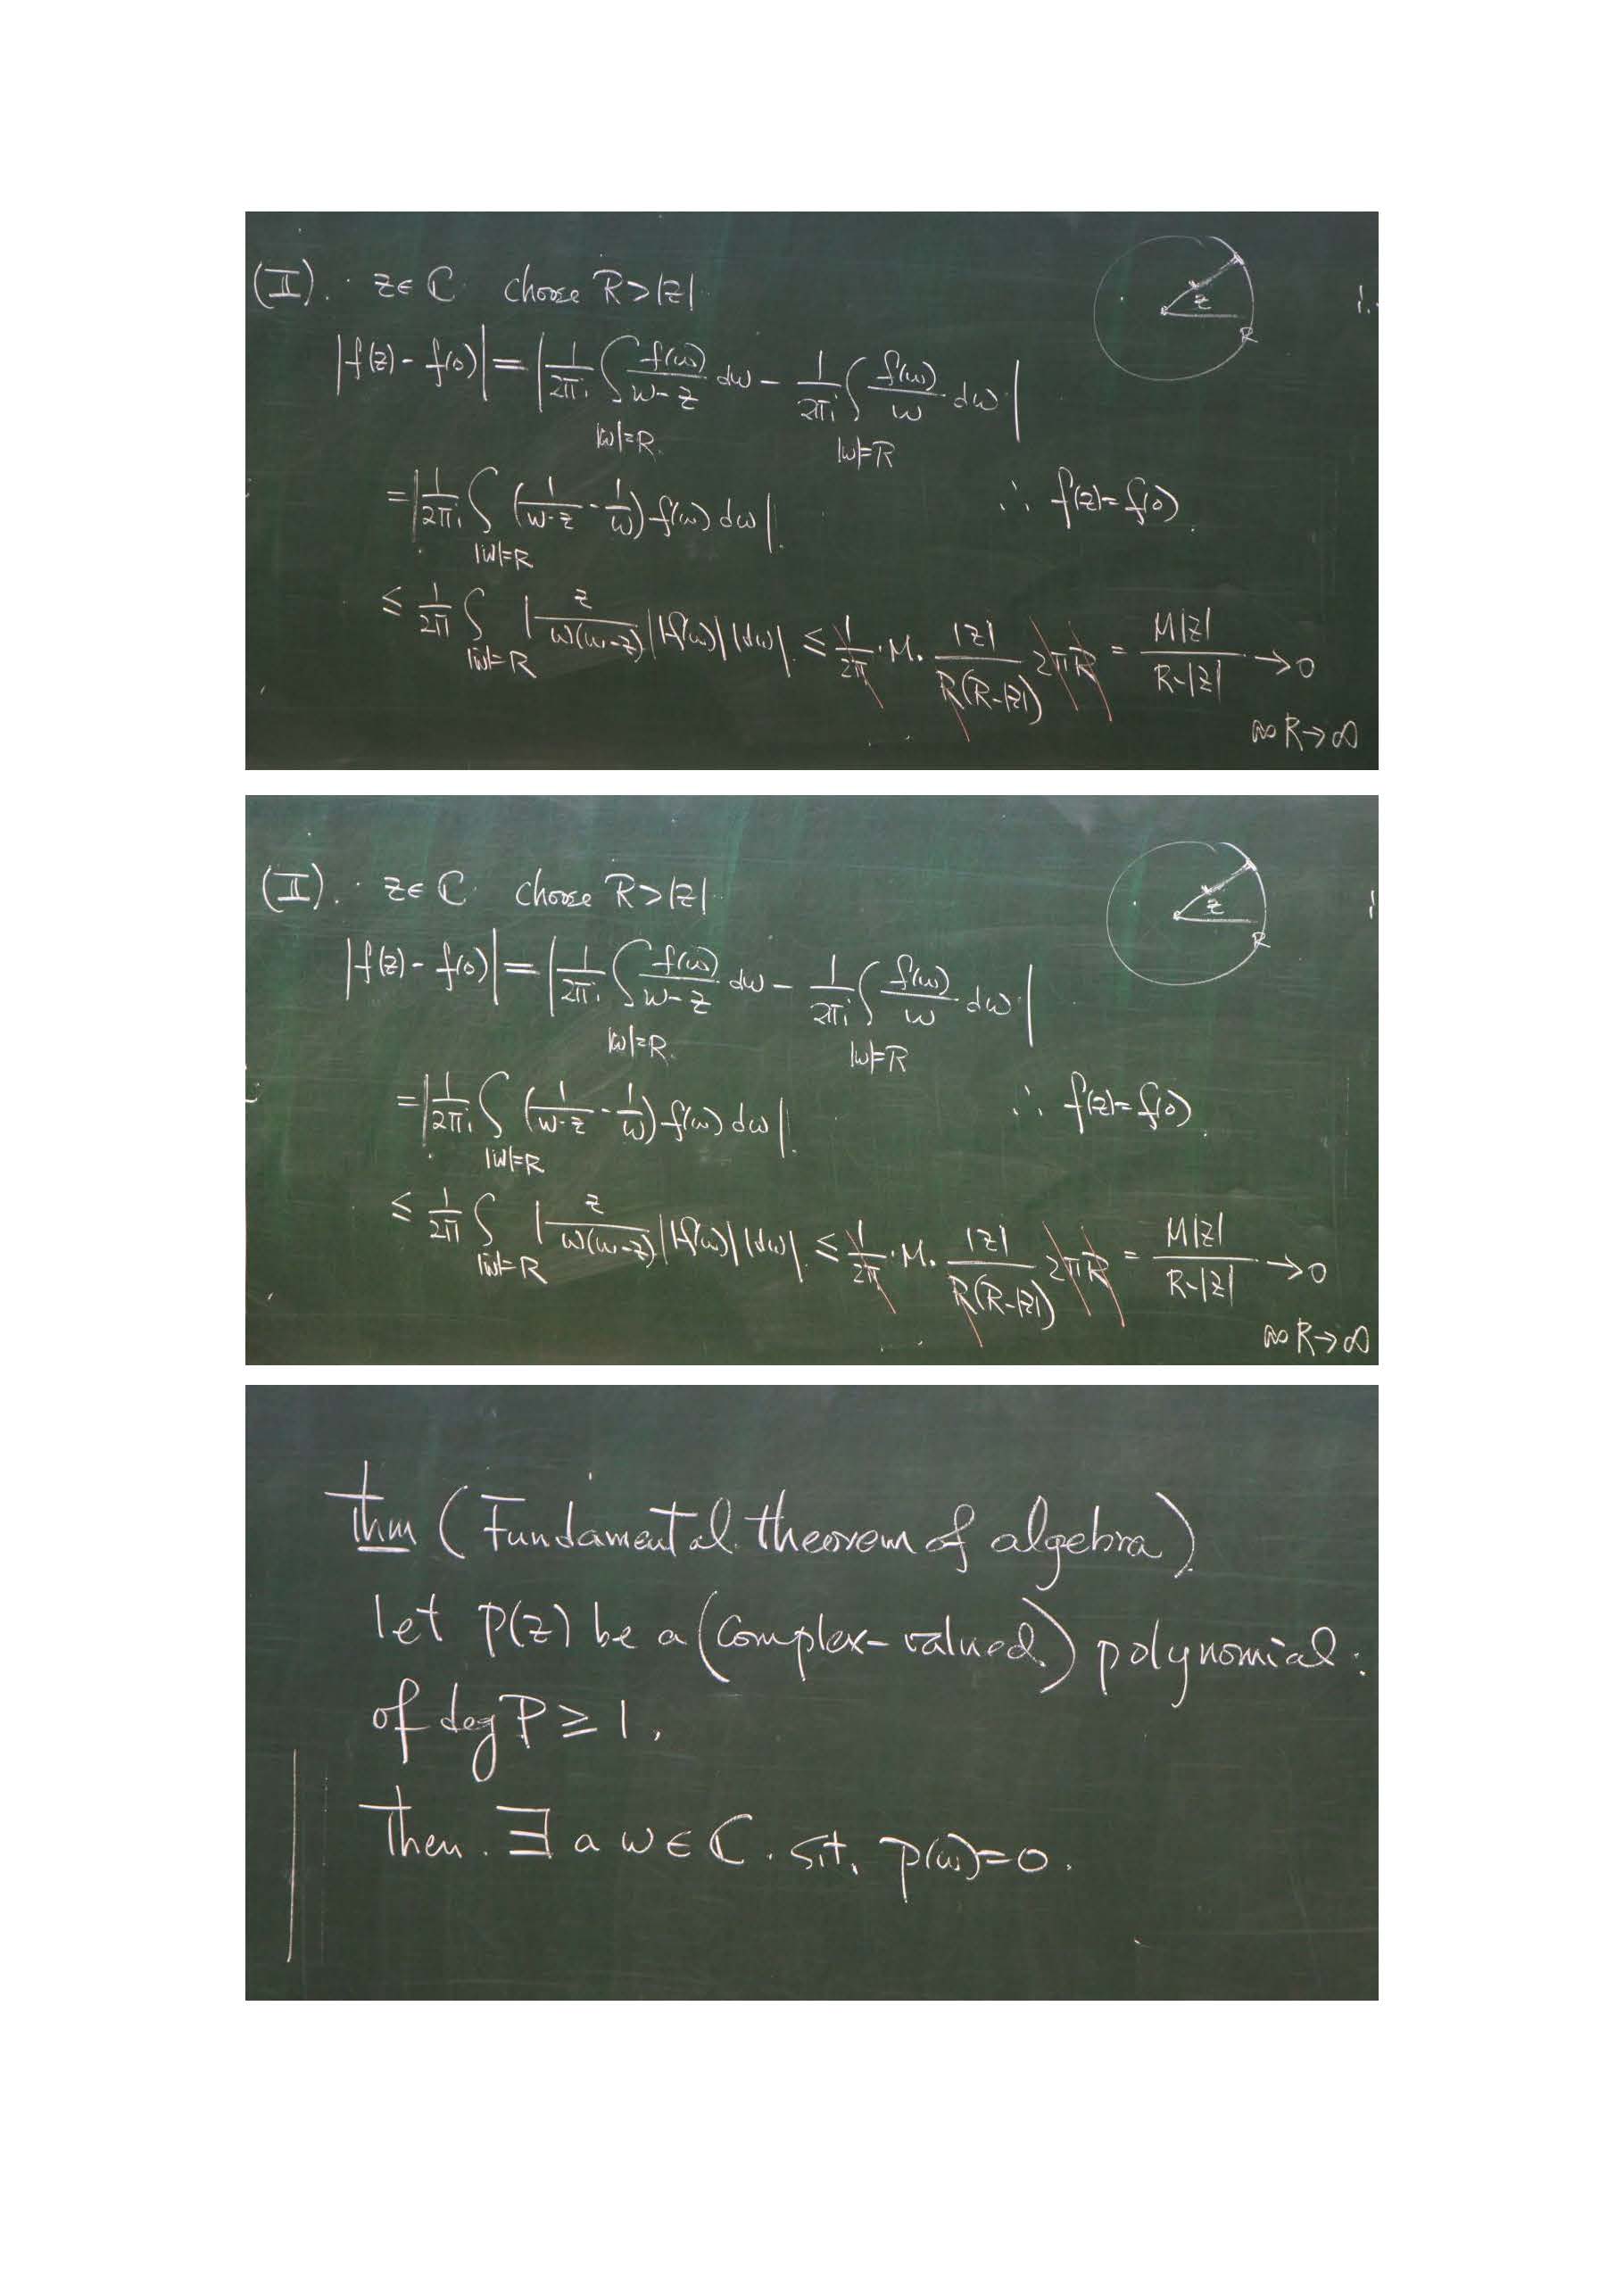 (II). z∈ℂ choose R>|z|
z
R
|f(z) - f(0)| = |1/2πi ∫_{|w|=R} f(w)/(w-z) dw - 1/2πi ∫_{|w|=R} f(w)/w dw|
= |1/2πi ∫_{|w|=R} (1/(w-z) - 1/w) f(w) dw|
∴ f(z)=f(0)
≤ 1/2π ∫_{|w|=R} |z/(w(w-z))| |f(w)| |dw| ≤ 1/2π · M · |z|/(R(R-|z|)) 2πR = M|z|/(R-|z|) → 0
as R→∞
(II). z∈ℂ choose R>|z|
z
R
|f(z) - f(0)| = |1/2πi ∫_{|w|=R} f(w)/(w-z) dw - 1/2πi ∫_{|w|=R} f(w)/w dw|
= |1/2πi ∫_{|w|=R} (1/(w-z) - 1/w) f(w) dw|
∴ f(z)=f(0)
≤ 1/2π ∫_{|w|=R} |z/(w(w-z))| |f(w)| |dw| ≤ 1/2π · M · |z|/(R(R-|z|)) 2πR = M|z|/(R-|z|) → 0
as R→∞
thm (Fundamental theorem of algebra)
let p(z) be a (complex-valued) polynomial
of deg P ≥ 1.
Then ∃ a w∈ℂ. s.t. p(w)=0.